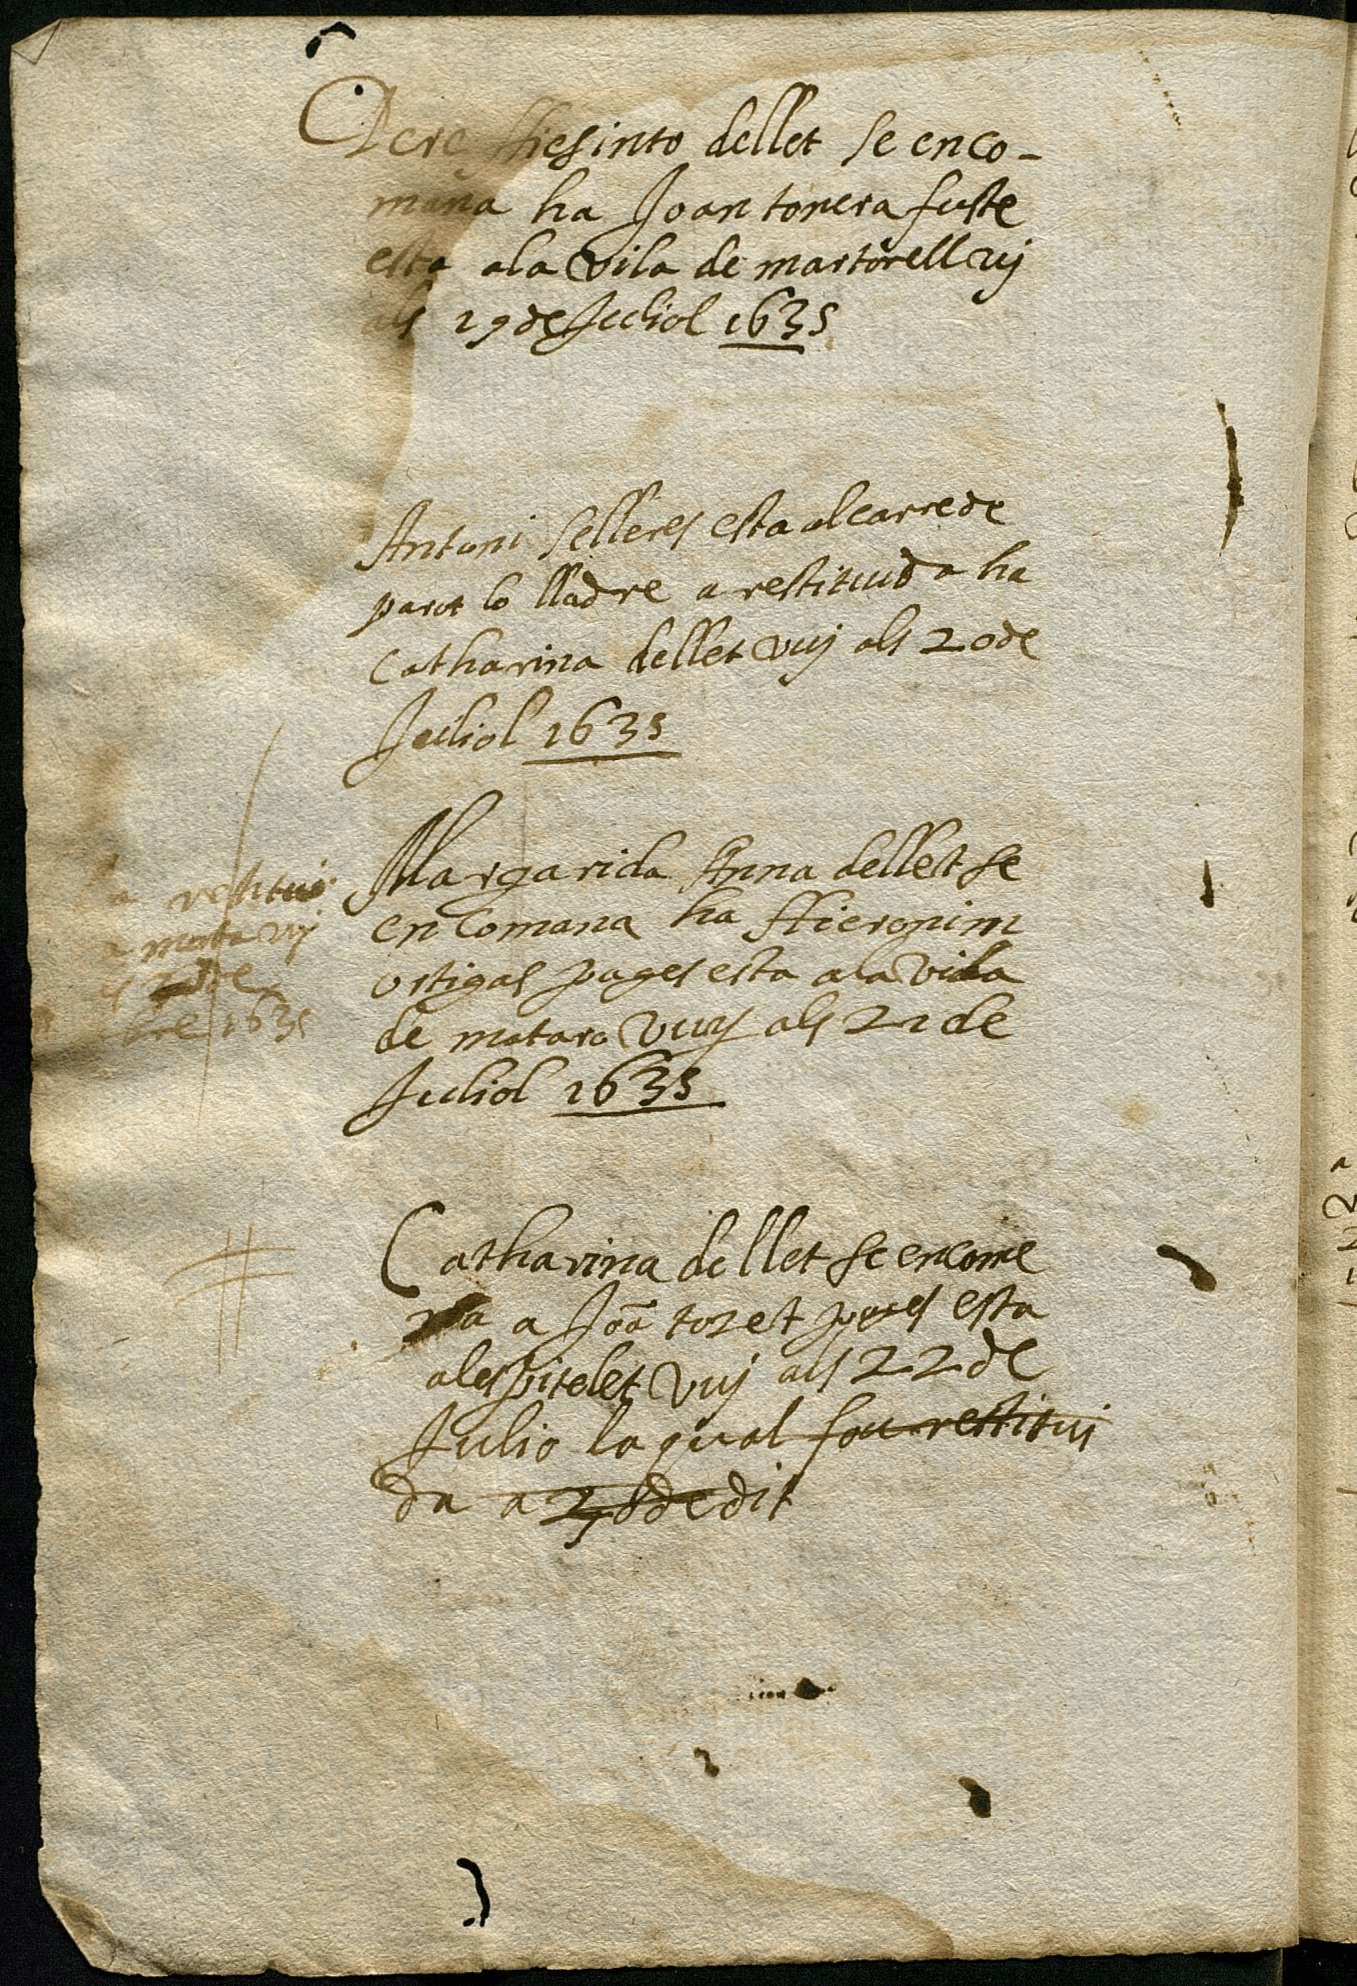 Pere Hiesinto dellet se enco-
mana ha Joan tonera fuste
esta ala vila de martorell vj
als 19 de Juliol 1635
Antoni Selleres esta al carre de
parot lo lladre a restituida ha
Catharina dellet vuj als 20 de
Juliol 1635
Margarida Anna dellet se
en comana ha Hieronim
ostigas pages esta a la vila
de mataro vuy als 21 de
Juliol 1635
restitui
a morta vuj
bre 1635
Catharina dellet se encome
na a Joã toret pages esta
alespitelet vuj als 22 de
Julio la qual fou restitui
da a 28 de dit